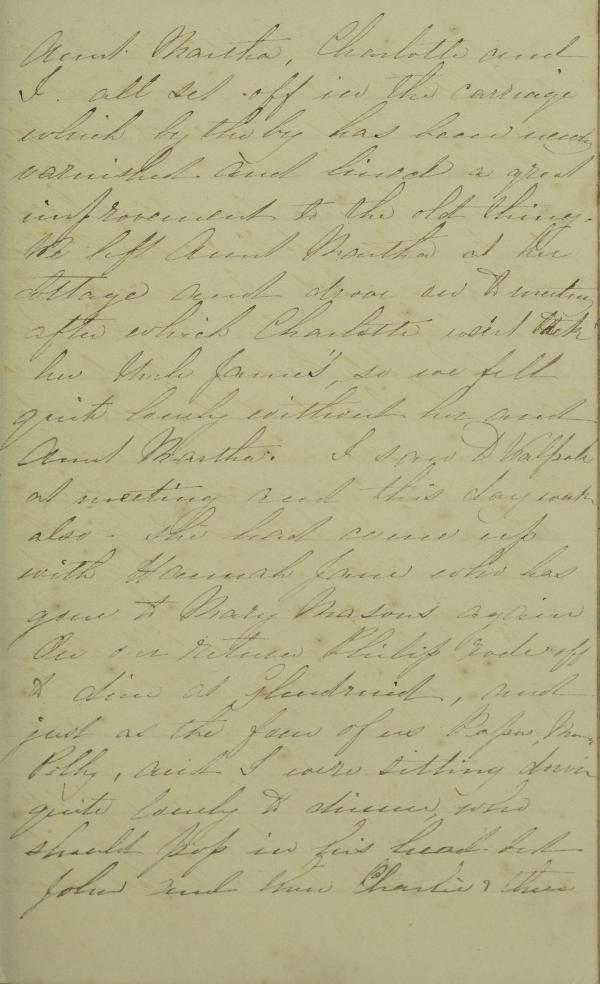 Aunt Martha, Charlotte and
I. all set off in the carriage
which by the by has been newly
varnished and lined a great
improvement to the old thing.
We left Aunt Martha at her
cottage and drove on to meeting
after which Charlotte went back
her Uncle James', so we felt
quite lonely without her and
Aunt Martha. I saw D Walpole
at meeting and this day week
also - she had come up
with Hannah Jane who has
gone to Mary Masons again
On our return Philip rode off
to dine at Glendruid, and
just as the four of us Papa, Mama
Polly, and I were sitting down
quite lonely to dinner, who
should pop in his head but
John and then Charlie & then